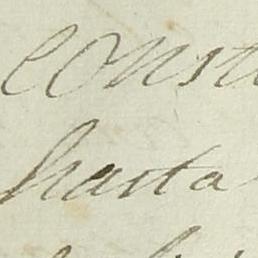 const
hasta